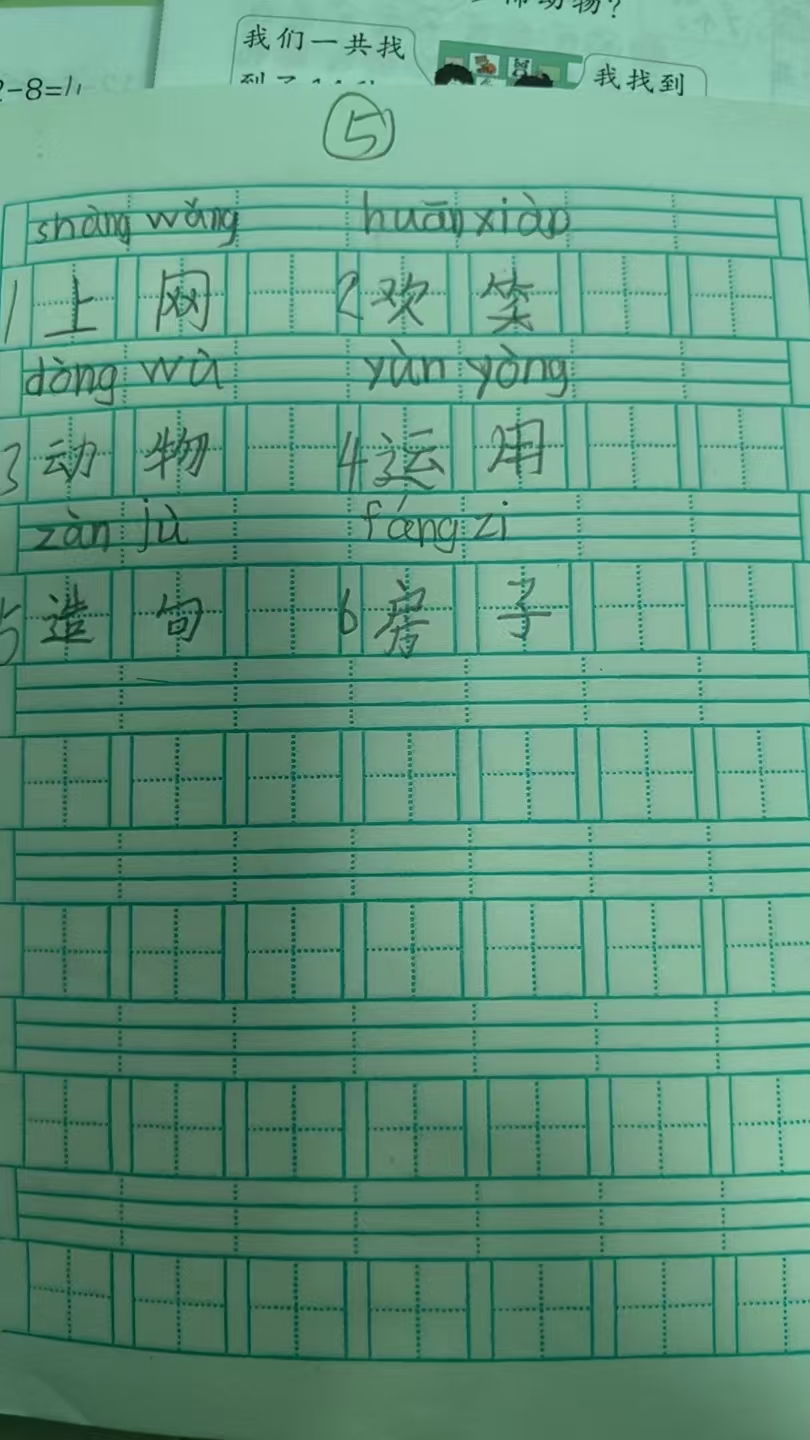 我们一共找
我找到
2-8=4
⑤
shàng wǎng huān xiào
1上网 2欢笑
dòng wù yùn yòng
3动物 4运用
zàn jù fáng zi
5造句 6房子